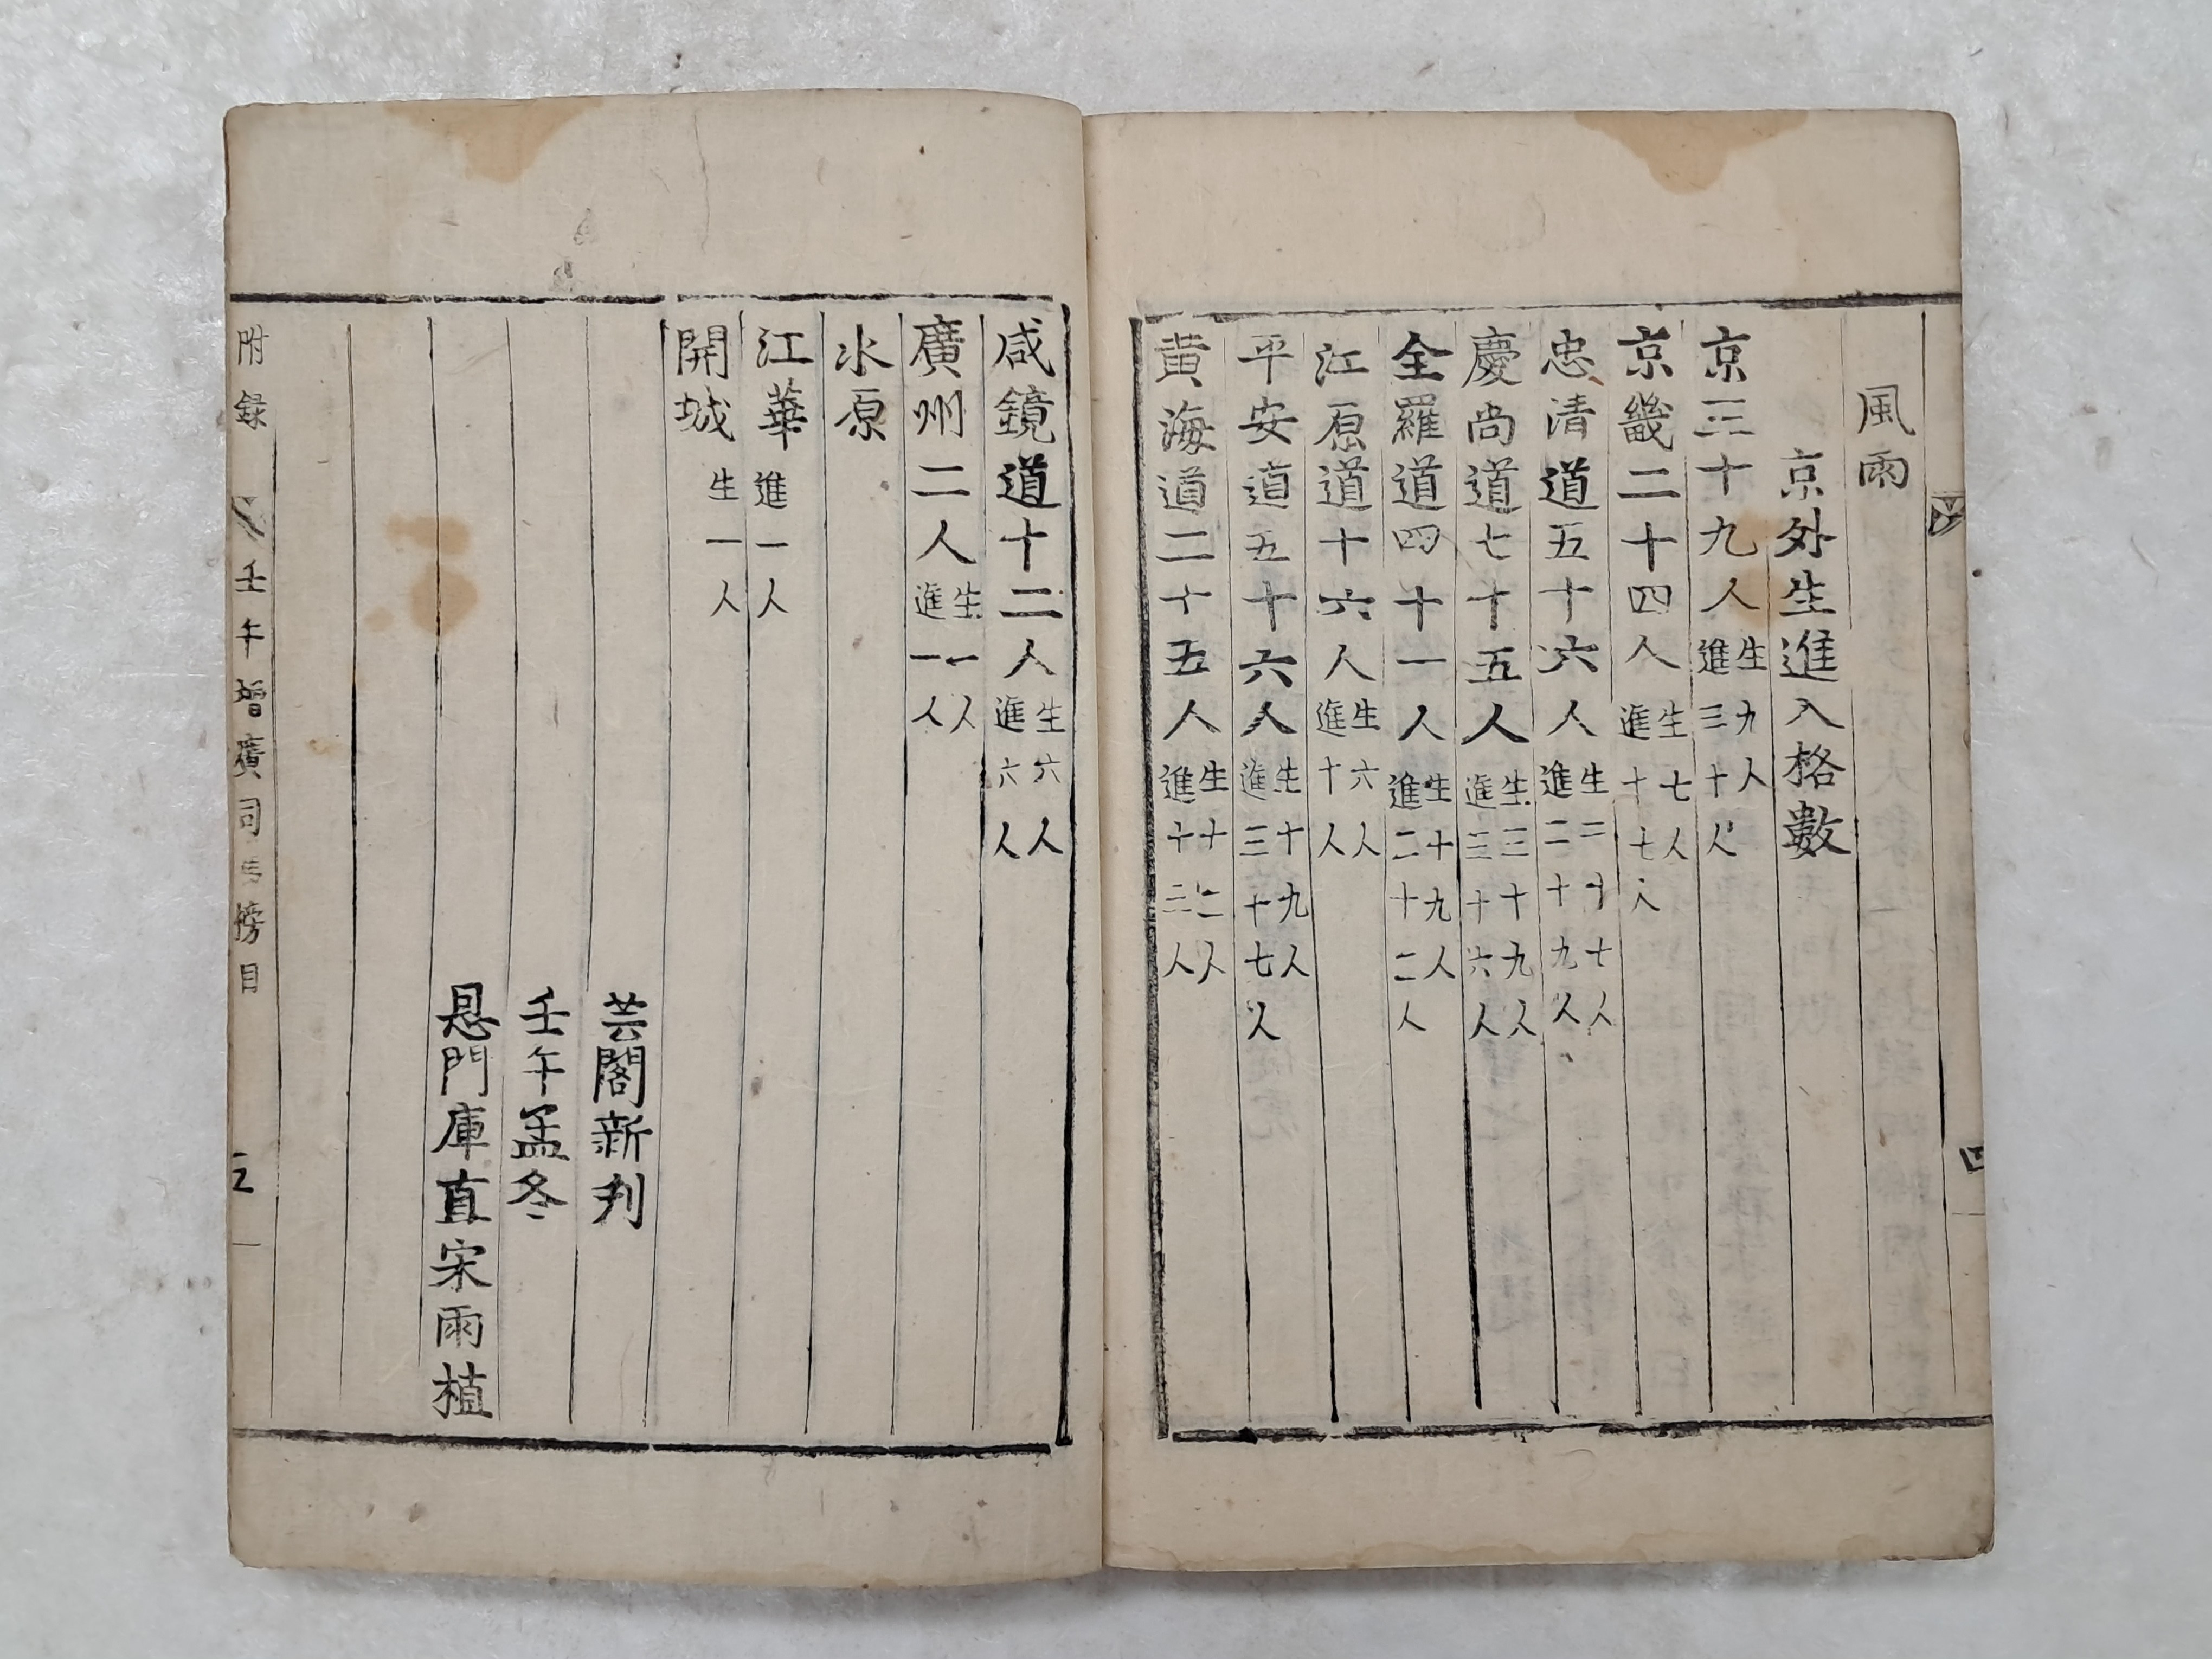 風雨
京外生進入格數
京三十九人 生九人 進三十人
京畿二十四人 生七人 進十七人
忠清道五十六人 生二十七人 進二十九人
慶尚道七十五人 生三十九人 進三十六人
全羅道四十一人 生十九人 進二十二人
江原道十六人 生六人 進十人
平安道五十六人 生十九人 進三十七人
黄海道二十五人 生十二人 進十三人
咸鏡道十二人 生六人 進六人
廣州二人 生一人 進一人
水原
江華 進一人
開城 生一人
芸閣新刋
壬午孟冬
悬門庫直宋雨植
附録 壬午增廣司馬榜目